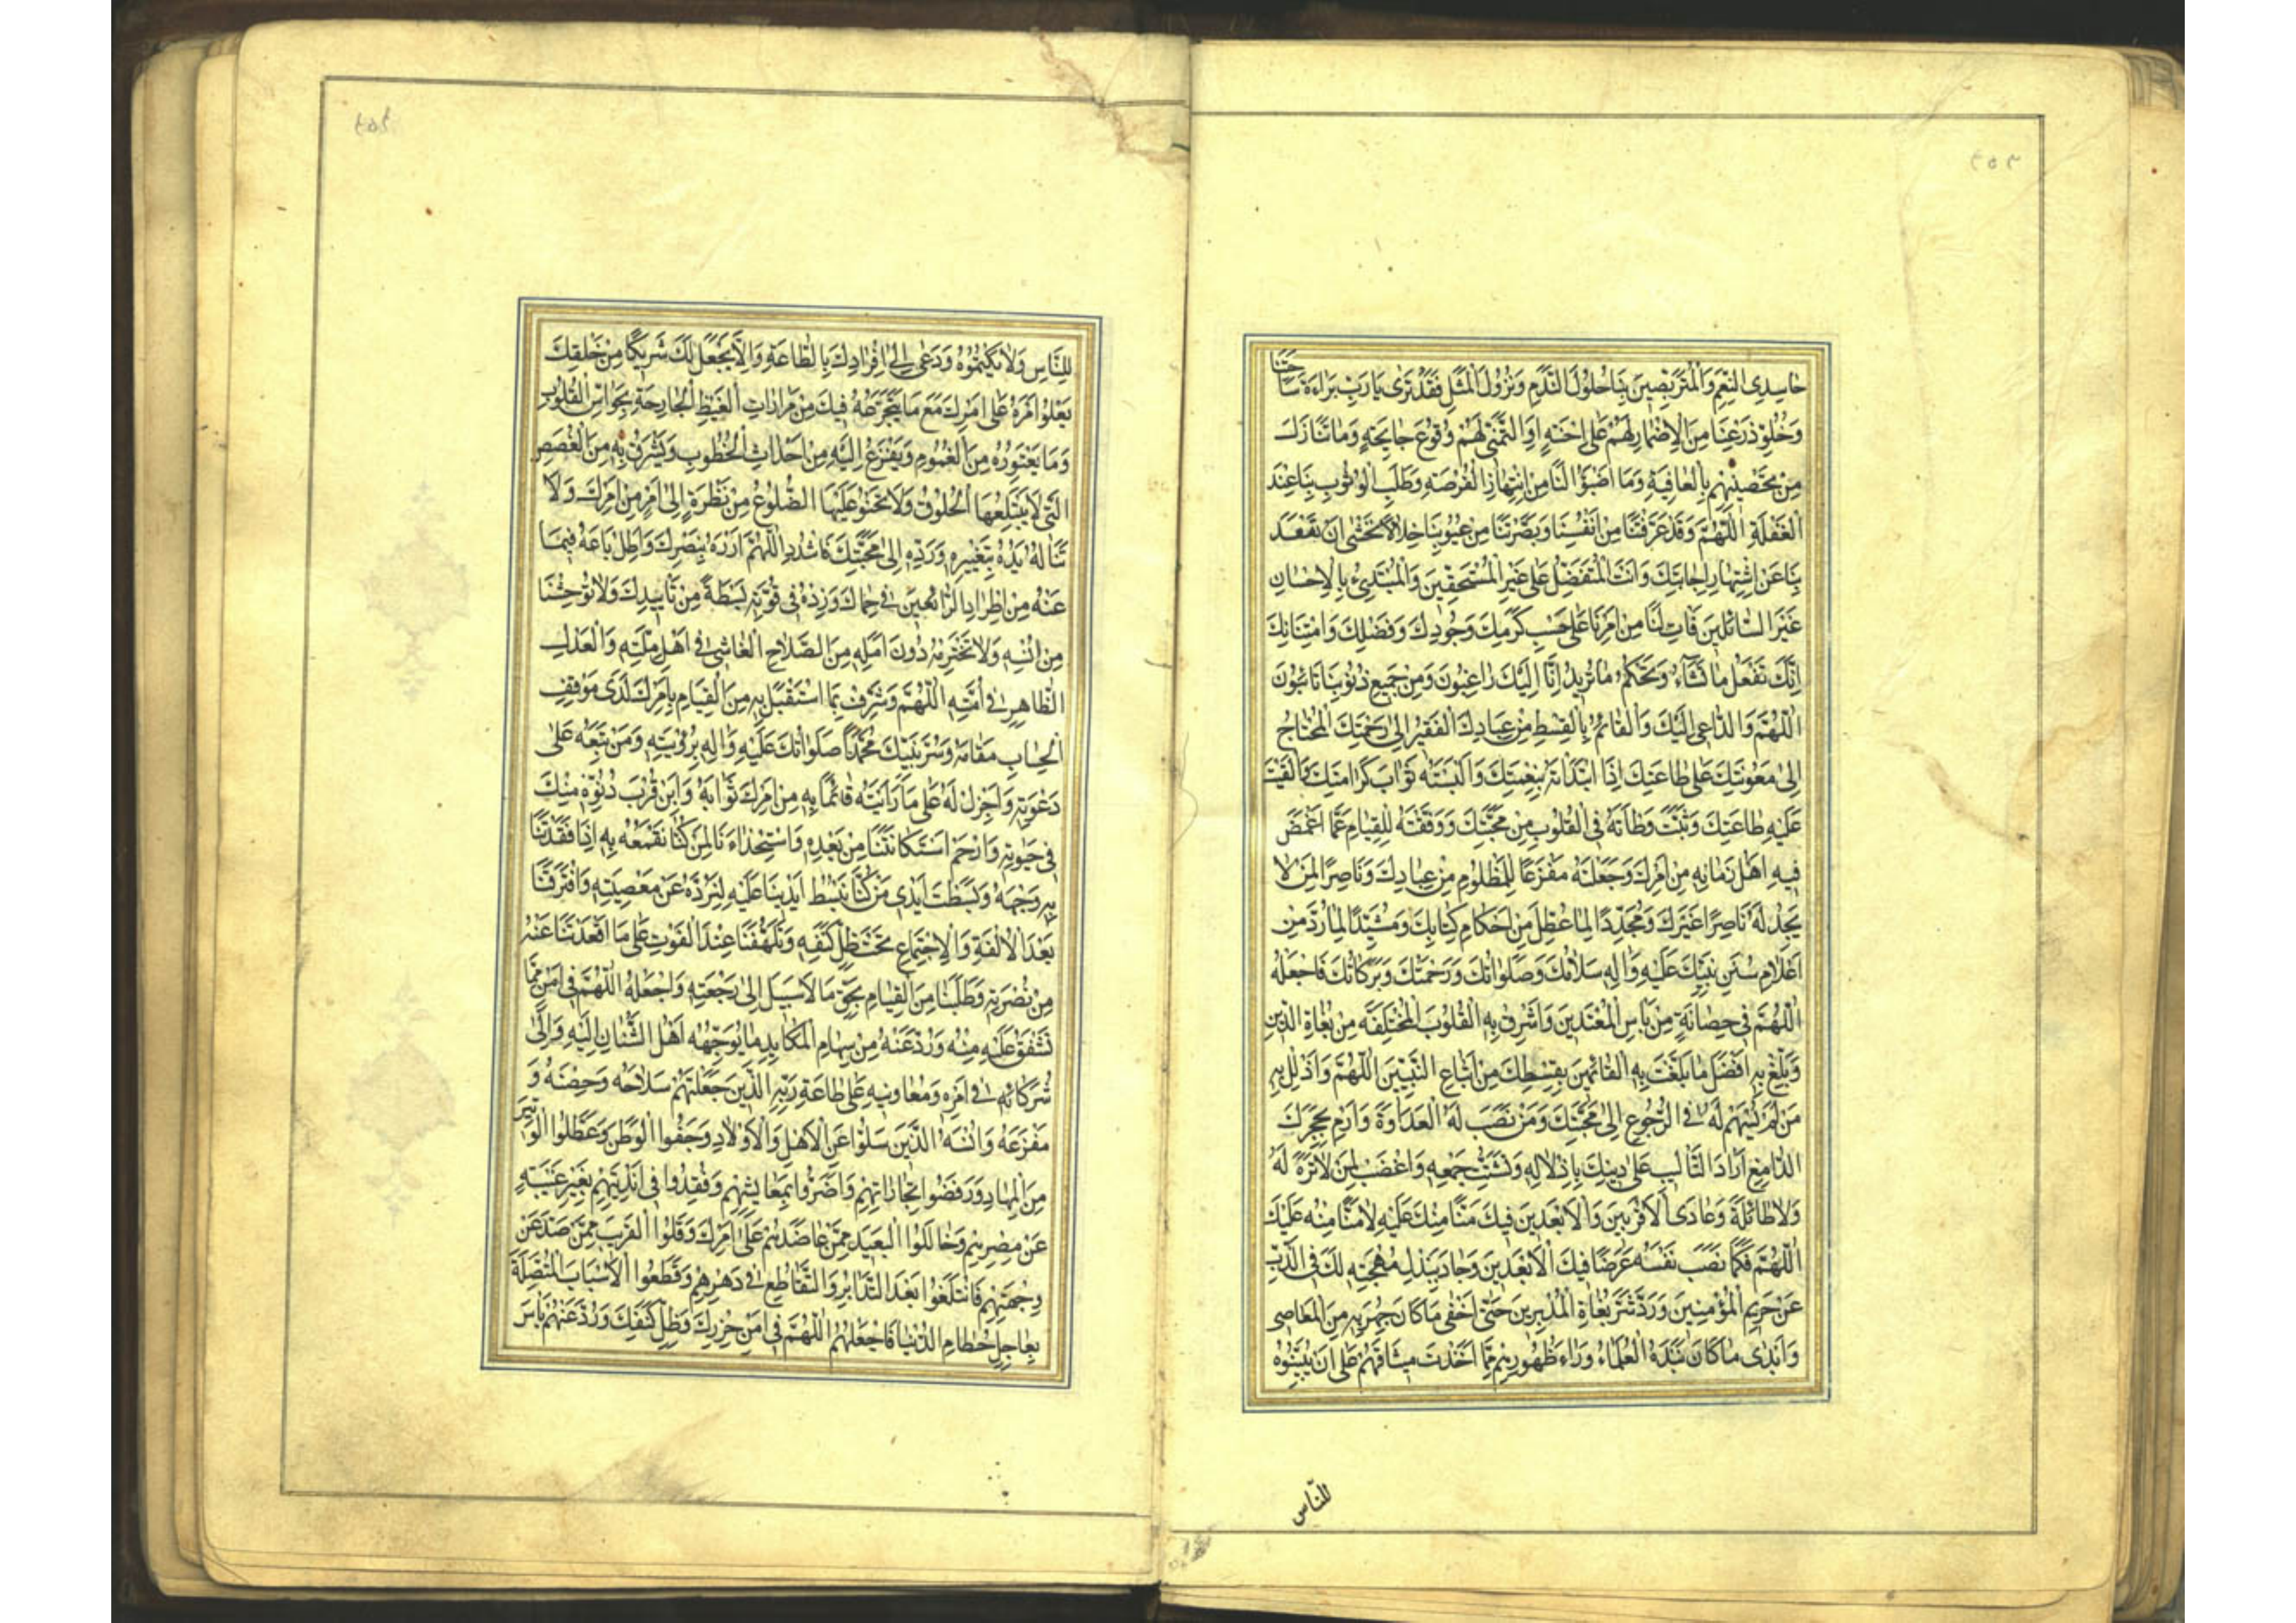 ٤٥٣
حَاسِدِی النِّعَمِ وَالْمُتَرَبِّصِينَ بِنَا حُلُولَ النَّدَمِ وَنُزُولَ الْمُثَلِ فَقَدْ تَرٰی یَا رَبِّ بَرَاءَةَ سَاحَتِنَا
وَخُلُوَّ ذَرْعِنَا مِنَ الْاِضْمَارِ لَهُمْ عَلٰی اِحْنَةٍ اَوِ التَّمَنِّی لَهُمْ وُقُوعَ جَایِحَةٍ وَمَا تَنَازَلَ
مِنْ تَحْصِینِهِمْ بِالْعَافِيَةِ وَمَا اَضَبَّؤُا لَنَا مِنِ انْتِهَازِ الْفُرْصَةِ وَطَلَبِ الْوُثُوبِ بِنَا عِنْدَ
الْغَفْلَةِ اَللّٰهُمَّ وَقَدْ عَرَّفْتَنَا مِنْ اَنْفُسِنَا وَبَصَّرْتَنَا مِنْ عُیُوبِنَا خِلَالًا نَخْشٰی اَنْ تَقْعُدَ
بِنَا عَنِ اشْتِهَارِ اِجَابَتِكَ وَاَنْتَ الْمُتَفَضِّلُ عَلٰی غَیْرِ الْمُسْتَحِقِّينَ وَالْمُبْتَدِئُ بِالْاِحْسَانِ
غَیْرَ السَّائِلِينَ فَاٰتِ لَنَا مِنْ اَمْرِنَا عَلٰی حَسَبِ كَرَمِكَ وَجُودِكَ وَفَضْلِكَ وَامْتِنَانِكَ
اِنَّكَ تَفْعَلُ مَا تَشَاءُ وَتَحْكُمُ مَا تُرِیدُ اِنَّا اِلَیْكَ رَاغِبُونَ وَمِنْ جَمِیعِ ذُنُوبِنَا تَائِبُونَ
اَللّٰهُمَّ وَالدَّاعِی اِلَیْكَ وَالْقَائِمُ بِالْقِسْطِ مِنْ عِبَادِكَ الْفَقِیرُ اِلٰی رَحْمَتِكَ الْمُحْتَاجُ
اِلٰی مَعُونَتِكَ عَلٰی طَاعَتِكَ اِذَا ابْتَدَاْتَهُ بِنِعْمَتِكَ وَاَلْبَسْتَهُ ثَوَابَ كَرَامَتِكَ وَاَلْقَیْتَ
عَلَیْهِ طَاعَتِكَ وَثَبَّتَّ وَطْاَتَهُ فِی الْقُلُوبِ مِنْ مَحَبَّتِكَ وَوَفَّقْتَهُ لِلْقِیَامِ عَمَّا اَغْمَضَ
فِیهِ اَهْلُ زَمَانِهِ مِنْ اَمْرِكَ وَجَعَلْتَهُ مَفْزَعًا لِلْمَظْلُومِ مِنْ عِبَادِكَ وَنَاصِرًا لِمَنْ لَا
یَجِدُ لَهُ نَاصِرًا غَیْرَكَ وَمُجَدِّدًا لِمَا عُطِّلَ مِنْ اَحْكَامِ كِتَابِكَ وَمُشَیِّدًا لِمَا رُدَّ مِنْ
اَعْلَامِ سُنَنِ نَبِیِّكَ عَلَیْهِ وَاٰلِهِ سَلَامُكَ وَصَلَوَاتُكَ وَرَحْمَتُكَ وَبَرَكَاتُكَ فَاجْعَلْهُ
اَللّٰهُمَّ فِی حِصَانَةٍ مِنْ بَاْسِ الْمُعْتَدِينَ وَاَشْرِقْ بِهِ الْقُلُوبَ الْمُخْتَلِفَةَ مِنْ بُغَاةِ الدِّینِ
وَبَلِّغْ بِهِ اَفْضَلَ مَا بَلَّغْتَ بِهِ الْقَائِمِينَ بِقِسْطِكَ مِنْ اَتْبَاعِ النَّبِیِّینَ اَللّٰهُمَّ وَاَذْلِلْ بِهِ
مَنْ لَمْ تُسْهِمْ لَهُ فِی الرُّجُوعِ اِلٰی مَحَبَّتِكَ وَمَنْ نَصَبَ لَهُ الْعَدَاوَةَ وَارْمِ بِحَجَرِكَ
الدَّامِغِ اَرَادَ التَّالِیبَ عَلٰی دِینِكَ بِاِذْلَالِهِ وَتَشْتِیتِ جَمْعِهِ وَاغْضَبْ لِمَنْ لَا تِرَةَ لَهُ
وَلَا طَائِلَةَ وَعَادَی الْاَقْرَبِينَ وَالْاَبْعَدِينَ فِیكَ مَنًّا مِنْكَ عَلَیْهِ لَا مَنًّا مِنْهُ عَلَیْكَ
اَللّٰهُمَّ فَكَمَا نَصَبَ نَفْسَهُ غَرَضًا فِیكَ الْاَبْعَدِينَ وَجَادَ بِبَذْلِ مُهْجَتِهِ لَكَ فِی الذَّبِّ
عَنْ حَرِیمِ الْمُؤْمِنِينَ وَرَدَّ شَرَّ بُغَاةِ الْمُدْبِرِينَ حَتّٰی اَخْفٰی مَا كَانَ جُهِرَ بِهِ مِنَ الْمَعَاصِی
وَاَبْدٰی مَا كَانَ نَبَذَهُ الْعُلَمَاءُ وَرَاءَ ظُهُورِهِمْ مِمَّا اَخَذْتَ مِیثَاقَهُمْ عَلٰی اَنْ یُبَیِّنُوهُ
للنّاس
٤٥٤
لِلنَّاسِ وَلَا یَكْتُمُوهُ وَدَعٰی اِلٰی اِفْرَادِكَ بِالطَّاعَةِ وَاَلَّا یَجْعَلَ لَكَ شَرِیكًا مِنْ خَلْقِكَ
یَعْلُو اَمْرُهُ عَلٰی اَمْرِكَ مَعَ مَا یَتَجَرَّعُهُ فِیكَ مِنْ مَرَارَاتِ الْغَیْظِ الْجَارِحَةِ بِحَوَاسِّ الْقُلُوبِ
وَمَا یَعْتَوِرُهُ مِنَ الْغُمُومِ وَیَفْزَعُ اِلَیْهِ مِنْ اَحْدَاثِ الْخُطُوبِ وَیَشْرَقُ بِهِ مِنَ الْغُصَصِ
الَّتِی لَا یَبْتَلِعُهَا الْحُلُوقُ وَلَا تَحْنُو عَلَیْهَا الضُّلُوعُ مِنْ نَظْرَةٍ اِلٰی اَمْرٍ مِنْ اَمْرِكَ وَلَا
تَنَالُهُ یَدُهُ بِتَغْیِیرِهِ وَرَدِّهِ اِلٰی مَحَبَّتِكَ فَاشْدُدِ اللّٰهُمَّ اَزْرَهُ بِنَصْرِكَ وَاَطِلْ بَاعَهُ فِیمَا
عَنْهُ مِنْ اِطْرَادِ الرَّاتِعِينَ فِی حِمَاكَ وَزِدْهُ فِی قُوَّتِهِ بَسْطَةً مِنْ تَاْیِیدِكَ وَلَا تُوحِشْنَا
مِنْ اُنْسِهِ وَلَا تَخْتَرِمْهُ دُونَ اَمَلِهِ مِنَ الصَّلَاحِ الْفَاشِی فِی اَهْلِ مِلَّتِهِ وَالْعَدْلِ
الظَّاهِرِ فِی اُمَّتِهِ اَللّٰهُمَّ وَشَرِّفْ بِمَا اسْتَقْبَلَ بِهِ مِنَ الْقِیَامِ بِاَمْرِكَ لَدٰی مَوْقِفِ
الْحِسَابِ مَقَامَهُ وَسُرَّ نَبِیَّكَ مُحَمَّدًا صَلَوَاتُكَ عَلَیْهِ وَاٰلِهِ بِرُؤْیَتِهِ وَمَنْ تَبِعَهُ عَلٰی
دَعْوَتِهِ وَاَجْزِلْ لَهُ عَلٰی مَا رَاَیْتَهُ قَائِمًا بِهِ مِنْ اَمْرِكَ ثَوَابَهُ وَاَبِنْ قُرْبَ دُنُوِّهِ مِنْكَ
فِی حَیٰوتِهِ وَارْحَمِ اسْتِكَانَتَنَا مِنْ بَعْدِهِ وَاسْتِخْذَاءَنَا لِمَنْ كُنَّا نَقْمَعُهُ بِهِ اِذَا فَقَدْتَنَا
بِهِ وَجْهَهُ وَبَسَطْتَ اَیْدِی مَنْ كُنَّا نَبْسُطُ اَیْدِیَنَا عَلَیْهِ لِنَرُدَّهُ عَنْ مَعْصِیَتِهِ وَافْتَرَقْنَا
بَعْدَ الْاُلْفَةِ وَالْاِجْتِمَاعِ تَحْتَ ظِلِّ كَنَفِهِ وَتَلَهَّفْنَا عِنْدَ الْفَوْتِ عَلٰی مَا اَقْعَدْتَنَا عَنْهُ
مِنْ نُصْرَتِهِ وَطَلَبْنَا مِنَ الْقِیَامِ بِحَقِّ مَا لَا سَبِیلَ اِلٰی رَجْعَتِهِ وَاجْعَلْهُ اللّٰهُمَّ فِی اَمْنٍ مِمَّا
نُشْفِقُ عَلَیْهِ مِنْهُ وَرُدَّ عَنْهُ مِنْ سِهَامِ الْمَكَایِدِ مَا یُوَجِّهُهُ اَهْلُ الشَّنَاٰنِ اِلَیْهِ وَاِلٰی
شُرَكَائِهِ فِی اَمْرِهِ وَمُعَاوِنِیهِ عَلٰی طَاعَةِ رَبِّهِ الَّذِینَ جَعَلْتَهُمْ سِلَاحَهُ وَحِصْنَهُ وَ
مَفْزَعَهُ وَاُنْسَهُ الَّذِینَ سَلَوْا عَنِ الْاَهْلِ وَالْاَوْلَادِ وَجَفَوُا الْوَطَنَ وَعَطَّلُوا الْوَثِیرَ
مِنَ الْمِهَادِ وَرَفَضُوا تِجَارَاتِهِمْ وَاَضَرُّوا بِمَعَایِشِهِمْ وَفُقِدُوا فِی اَنْدِیَتِهِمْ بِغَیْرِ غَیْبَةٍ
عَنْ مِصْرِهِمْ وَخَالَلُوا الْبَعِیدَ مِمَّنْ عَاضَدَهُمْ عَلٰی اَمْرِكَ وَقَلَوُا الْقَرِیبَ مِمَّنْ صَدَّ عَنْ
وِجْهَتِهِمْ فَائْتَلَفُوا بَعْدَ التَّدَابُرِ وَالتَّقَاطُعِ فِی دَهْرِهِمْ وَقَطَعُوا الْاَسْبَابَ الْمُتَّصِلَةَ
بِعَاجِلِ حُطَامِ الدُّنْیَا فَاجْعَلْهُمُ اللّٰهُمَّ فِی اَمْنِ حِرْزِكَ وَظِلِّ كَنَفِكَ وَرُدَّ عَنْهُمْ بَاْسَ